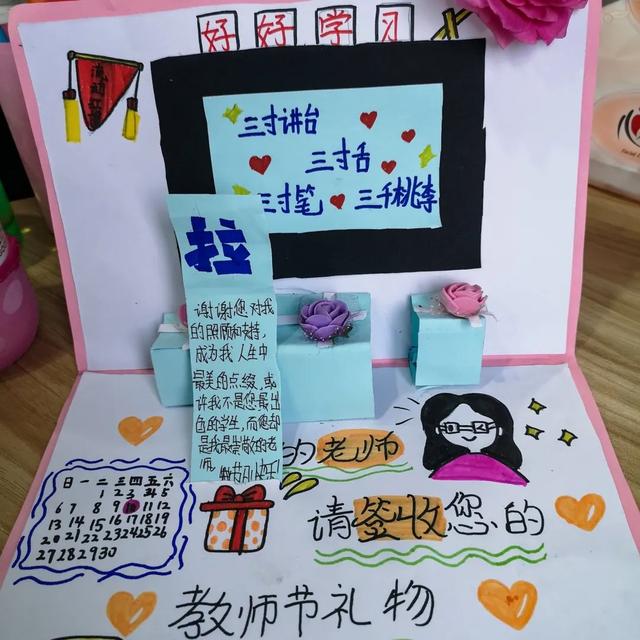 好好学习
三寸讲台
三寸舌
三寸笔 三千桃李
拉
谢谢您对我
的照顾和支持,
成为我人生中
最美的点缀,或
许我不是您最出
色的学生,而您却
是我最崇敬的老
师
的老师
请签收您的
教师节礼物
日 一 二 三 四 五 六
1 2 3 4 5
6 7 8 9 10 11 12
13 14 15 16 17 18 19
20 21 22 23 24 25 26
27 28 29 30